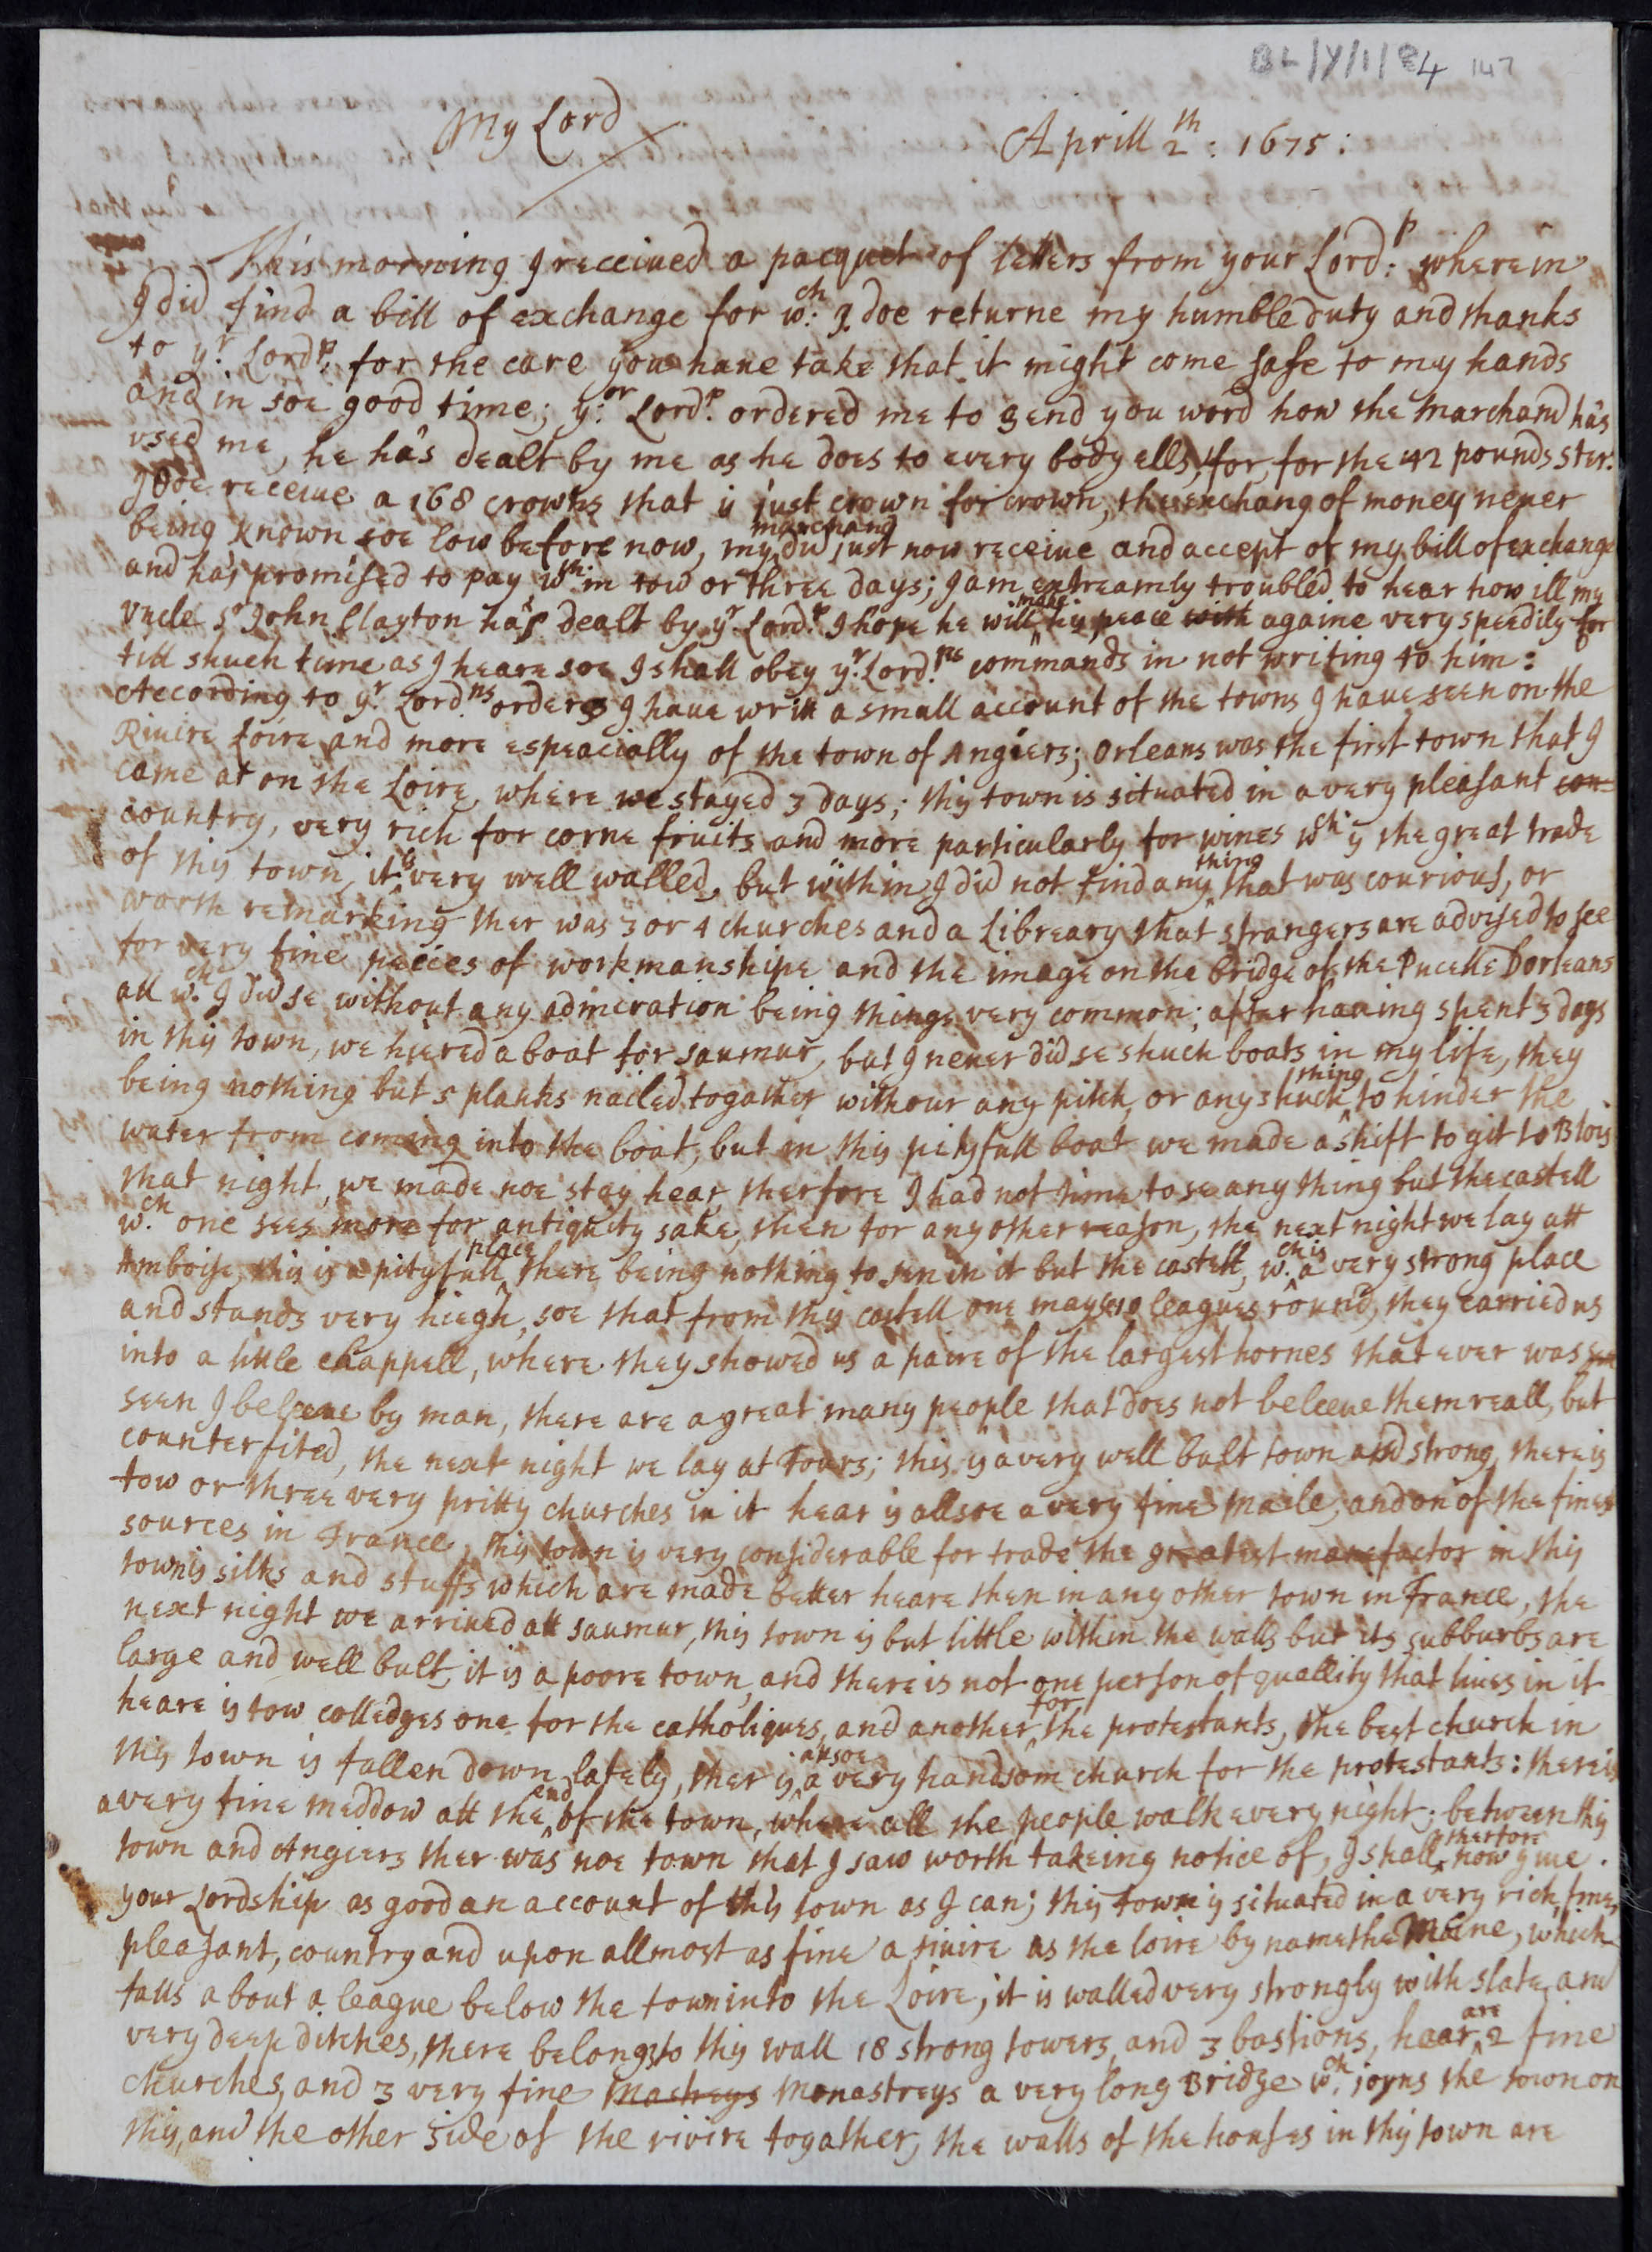 BL/Y/1/84 147
My Lord
Aprill 2th: 1675:
This morning I receiued a pacquet of letters from your Lord:p wherein
I did find a bill of exchange for w:ch I doe returne my humble duty and thanks
to y:r Lordp: for the care you haue take that it might come safe to my hands
and in soe good time; y:or Lordp: ordered me to send you word how the marchand has
vsed me, he has dealt by me as he does to every body ells, for, for the 42 pounds ster:
I doe receiue a 168 crowns that is just crown for crown, the exchang of money neuer
being known soe low before now, my marchand did just now receiue and accept of my bill of exchange
and has promised to pay w:th in tow or three days; I am extreamly troubled to hear how ill my
vncle Sr John Clayton has dealt by yr Lord:p I hope he will make his peace with againe very speedily for
till shuch time as I heare soe I shall obey y:r Lord:ps commands in not writing to him:
According to y:r Lord:ps orders I haue writt a small account of the towns I haue seen on the
Riuire Loire and more espeacially of the town of Angiers; Orleans was the first town that I
came at on the Loire, where we stayed 3 days; this town is situated in a very pleasant con-
country, very rich for corne fruits and more particularly for wines wch is the great trade
of this town, it is very well walled, but within I did not find any thing that was courious, or
worth remarking ther was 3 or 4 churches and a Libreary that strangers are advised to see
for very fine peeces of workmanshipe and the image on the bridge of the Pucelle Dorleans
all w:ch I did se without any admiration being things very common; after hauing spent 3 days
in this town, we hiered a boat for saumur, but I neuer did se shuch boats in my life, they
being nothing but 5 planks nailed togather withour any pitch, or any shuch thing to hinder the
water from coming into the boat, but in this pityfull boat we made a shift to git to Blois
that night, we made noe stay hear, therfore I had not time to se any thing but the castell
w:ch one sees more for antiquity sake, then for any other reason, the next night we lay att
Amboise, this is a pityfull place there being nothing to sen in it but the castell, w:ch is a very strong place
and stands very hiegh, soe that from this castell one may se 10 leagues round, they carried us
into a little chappell, where they showed us a paire of the largest hornes that ever was
seen I beleeue by man, there are a great many people that does not beleeue them reall, but
counterfited, the next night we lay at Tours; this is a very well bult town and strong, there is
tow or three very pritty churches in it hear is allsoe a very fine maile, and on of the finest
sources in France, this town is very considerable for trade the greatest manefactor in this
town is silks and stuffs which are made better heare then in any other town in France, the
next night we arriued att saumur, this town is but little within the walls but its subburbs are
large and well bult, it is a poore town, and there is not one person of quallity that liues in it
heare is tow colledges one for the catholiques, and another for the protestants, the best church in
this town is fallen down lately, ther is allsoe a very handsom church for the protestants: there is
a very fine meddow att the end of the town, where all the people walk every night; between this
town and Angiers ther was noe town that I saw worth takeing notice of, I shall therfore now giue
your Lordship as good an account of this town as I can; this town is situated in a very rich, fine,
pleasant, country and upon allmost as fine a riuire as the loire by name the Maine, which
falls about a league below the town into the Loire, it is walled very strongly with slate and
very deep ditches, there belongs to this wall 18 strong towers, and 3 bastions, hear are 2 fine
churches, and 3 very fine Mastreys Monastreys a very long Bridge w:ch joyns the town on
this, and the other side of the rivire togather, the walls of the houses in this town are